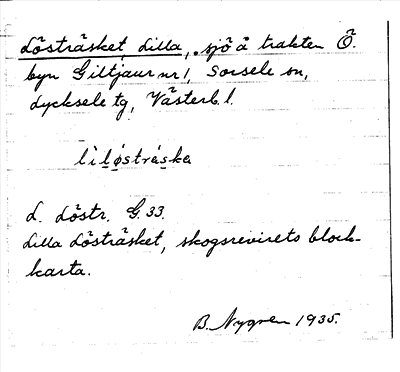 Lösträsket Lilla, sjö å trakten Ö.
byn Giltjaur nr 1, Sorsele sn,
Lycksele tg, Västerb. l.
lìløstráska
L. Löstr. G. 33.
Lilla Lösträsket, skogsrevirets block-
karta.
B. Nygren 1935.